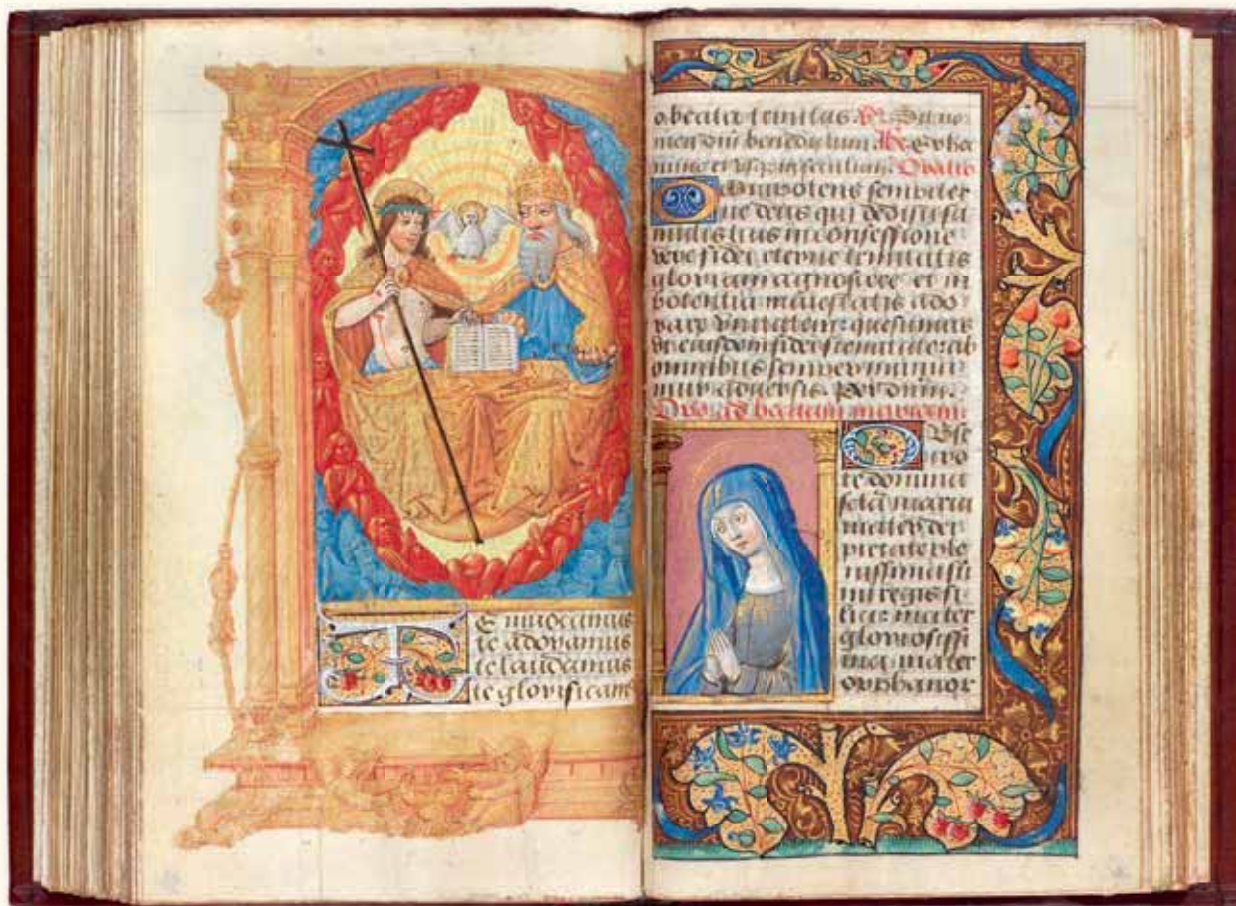 Te invocamus
te adoramus
te laudamus
te glorificam
o beata trinitas ℣. Sit no
men dñi benedictum ℟. Ex hoc
nunc et usq in seculum. Oratio
Omnipotens sempiter
ne deus qui dedisti fa
mulis tuis in confessione
vere fidei eterne trinitatis
gloriam agnoscere et in
potentia maiestatis ado
rare unitatem: quesumus
ut eiusdem fidei firmitate ab
omnibus semper muniā
mur adversis. Per domin.
Oro ad beatam mariam
Obse
cro
te domina
sctā maria
mater dei
pietate ple
nissima sū
mi regis fi
lia: mater
gloriosissi
ma: mater
orphanor